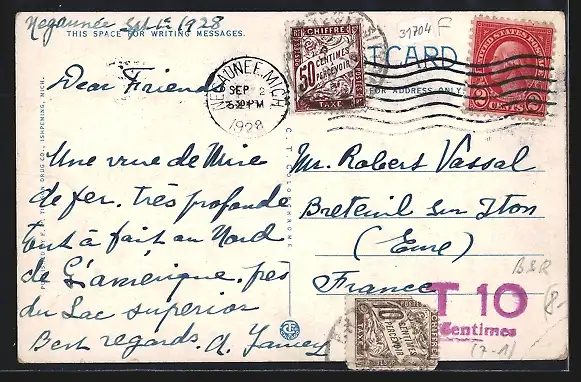 Negaunee Sept 1e 1928
THIS SPACE FOR WRITING MESSAGES.
Dear Friend
Une vue de Mine
de fer. très profonde
tout à fait au Nord
de L'amérique. près
du Lac superior
Best regards. A.
DRUG CO., ISHPEMING, MICH.
C. T. COLORCHROME
NEGAUNEE, MICH.
SEP 2
PM
1928
CHIFFRE
POSTES
50 CENTIMES
A PERCEVOIR
TAXE
31704 F
TCARD
FOR ADDRESS ONLY
UNITED STATES POSTAGE
2 CENTS 2
Mr. Robert Vassal
Breteuil sur Iton
(Eure)
France
B&R
T 10
Centimes
8-
CHIFFRE
POSTES
10 CENTIMES
A PERCEVOIR
TAXE